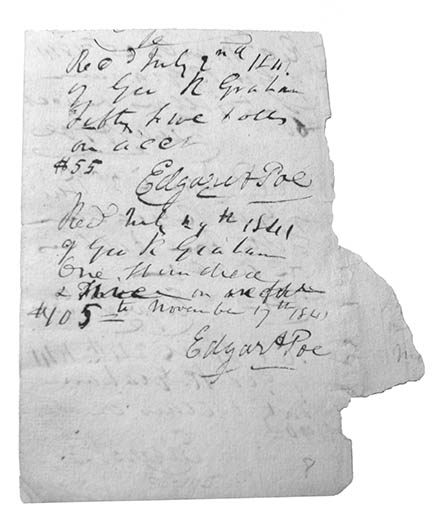 Recd July 2nd 1841
of Geo R Graham
Fifty five dolls
on acct
$55
Edgar A Poe
Recd July 29th 1841
of Geo R Graham
One Hundred
& Three on
$105 to November 17th 1841
Edgar A Poe